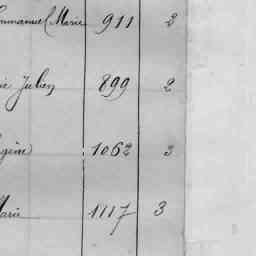 Emmanuel Marie 911 2
ie Julien 899 2
gène 1062 3
Marie 1117 3